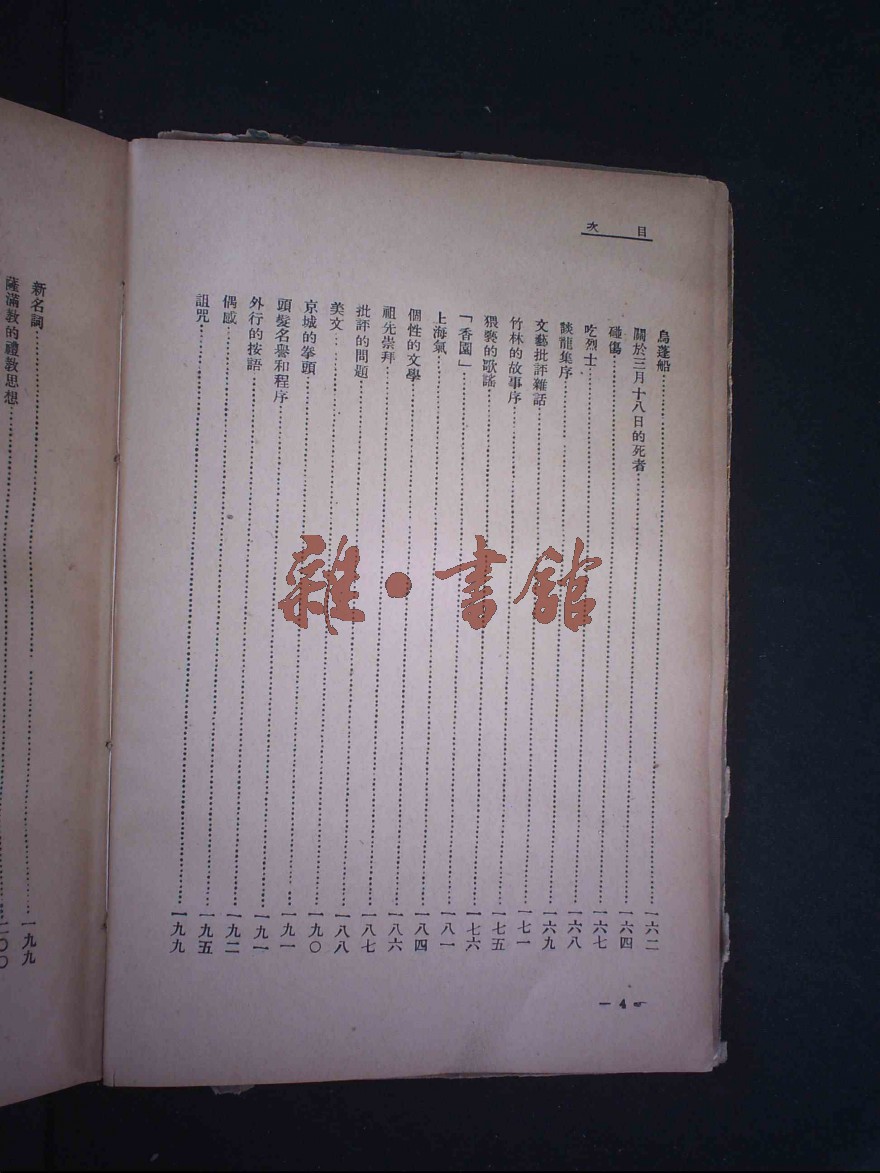 目次
烏蓬船……一六二
關於三月十八日的死者……一六四
碰傷……一六七
吃烈士……一六八
談龍集序……一六九
文藝批評雜話……一七一
竹林的故事序……一七五
猥褻的歌謠……一七六
「香園」……一八一
上海氣……一八四
個性的文學……一八六
祖先崇拜……一八七
批評的問題……一八八
美文……一九〇
京城的拳頭……一九一
頭髮名譽和程序……一九一
外行的按語……一九二
偶感……一九五
詛咒……一九九
— 4 —
新名詞……一九九
薩滿教的禮教思想……二〇〇
雜·書館